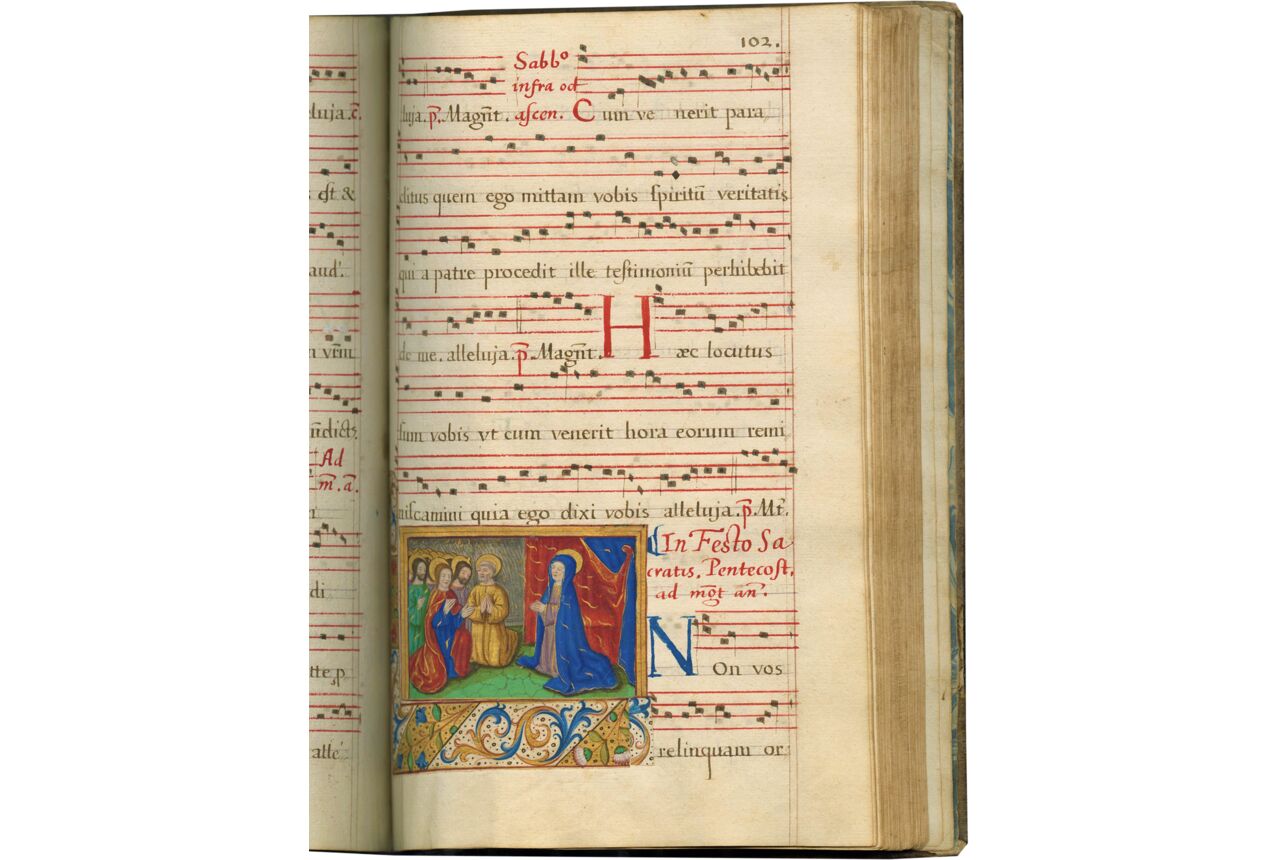 luja.
est &
aud'.
Ad
m. a.
di
102.
Sabb⁰
infra oct
luja. p̄. Magn̄t. ascen. Cum ve nerit para
clitus quem ego mittam vobis spiritū veritatis
qui a patre procedit ille testimoniū perhibebit
de me. alleluja. p̄. Magn̄t. Hæc locutus
sum vobis vt cum venerit hora eorum remi
niscamini quia ego dixi vobis alleluja. p̄. Mt̄.
In Festo Sa
cratis. Pentecost.
ad mḡt an̄.
NOn vos
relinquam or